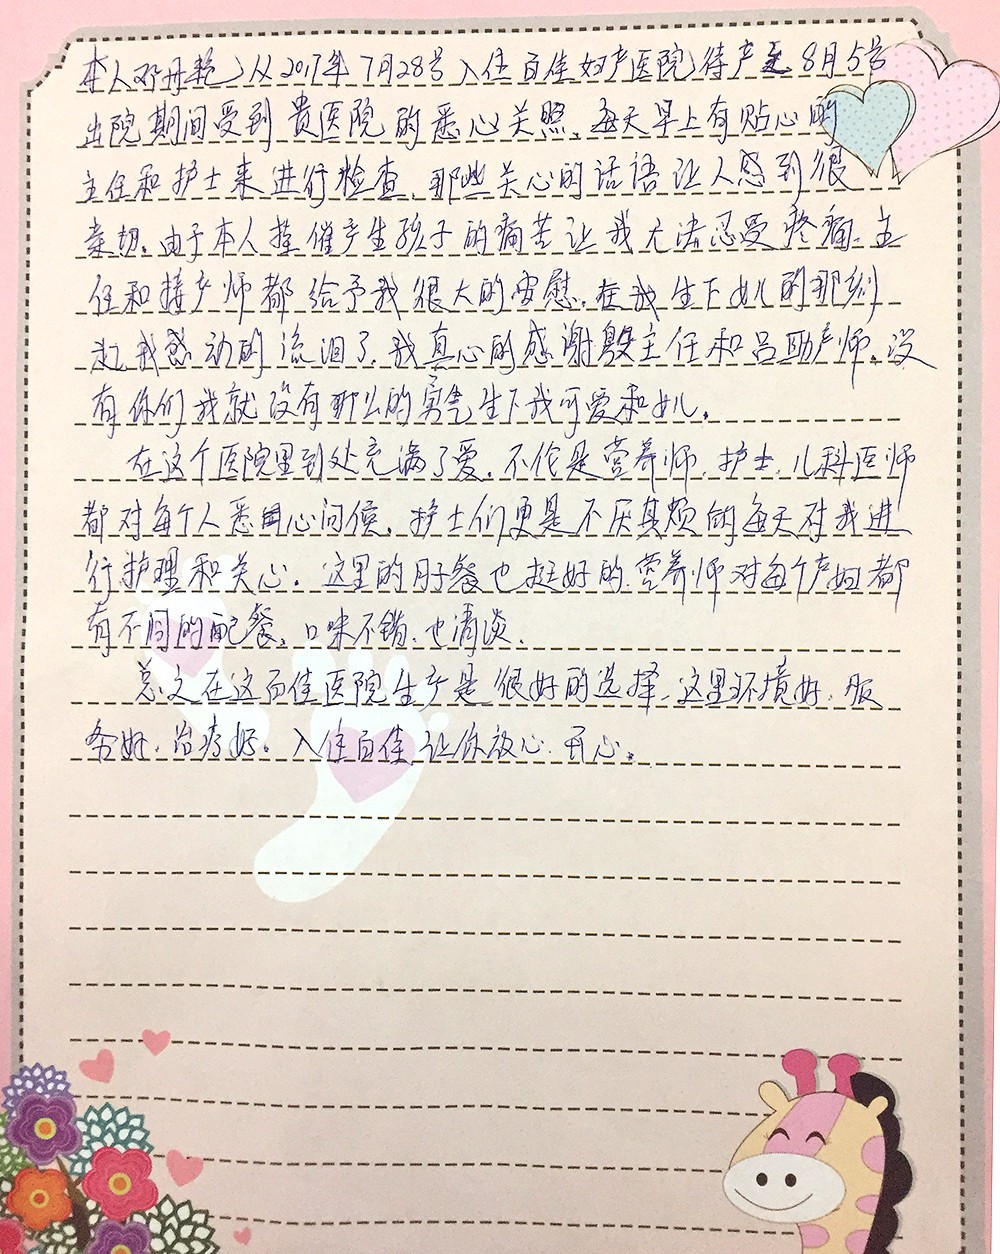 本人邓丹艳，从2017年7月28号入住百佳妇产医院待产至8月5号
出院期间受到贵医院的悉心关照。每天早上有贴心的
主任和护士来进行检查，那些关心的话语让人感到很
亲切。由于本人挂催产生孩子的痛苦让我无法忍受疼痛，主
任和接产师都给予我很大的安慰，在我生下女儿的那刻
起我感动的流泪了，我真心的感谢殷主任和吕助产师，没
有你们我就没有那么的勇气生下我可爱和女儿。
在这个医院里到处充满了爱，不伦是营养师，护士，儿科医师
都对每个人悉心问候，护士们更是不厌其烦的每天对我进
行护理和关心。这里的月子餐也挺好的，营养师对每个产妇都
有不同的配餐，口味不错，也清淡，
总文在这百佳医院生产是很好的选择，这里环境好，服
务好，治疗好。入住百佳让你放心，开心。